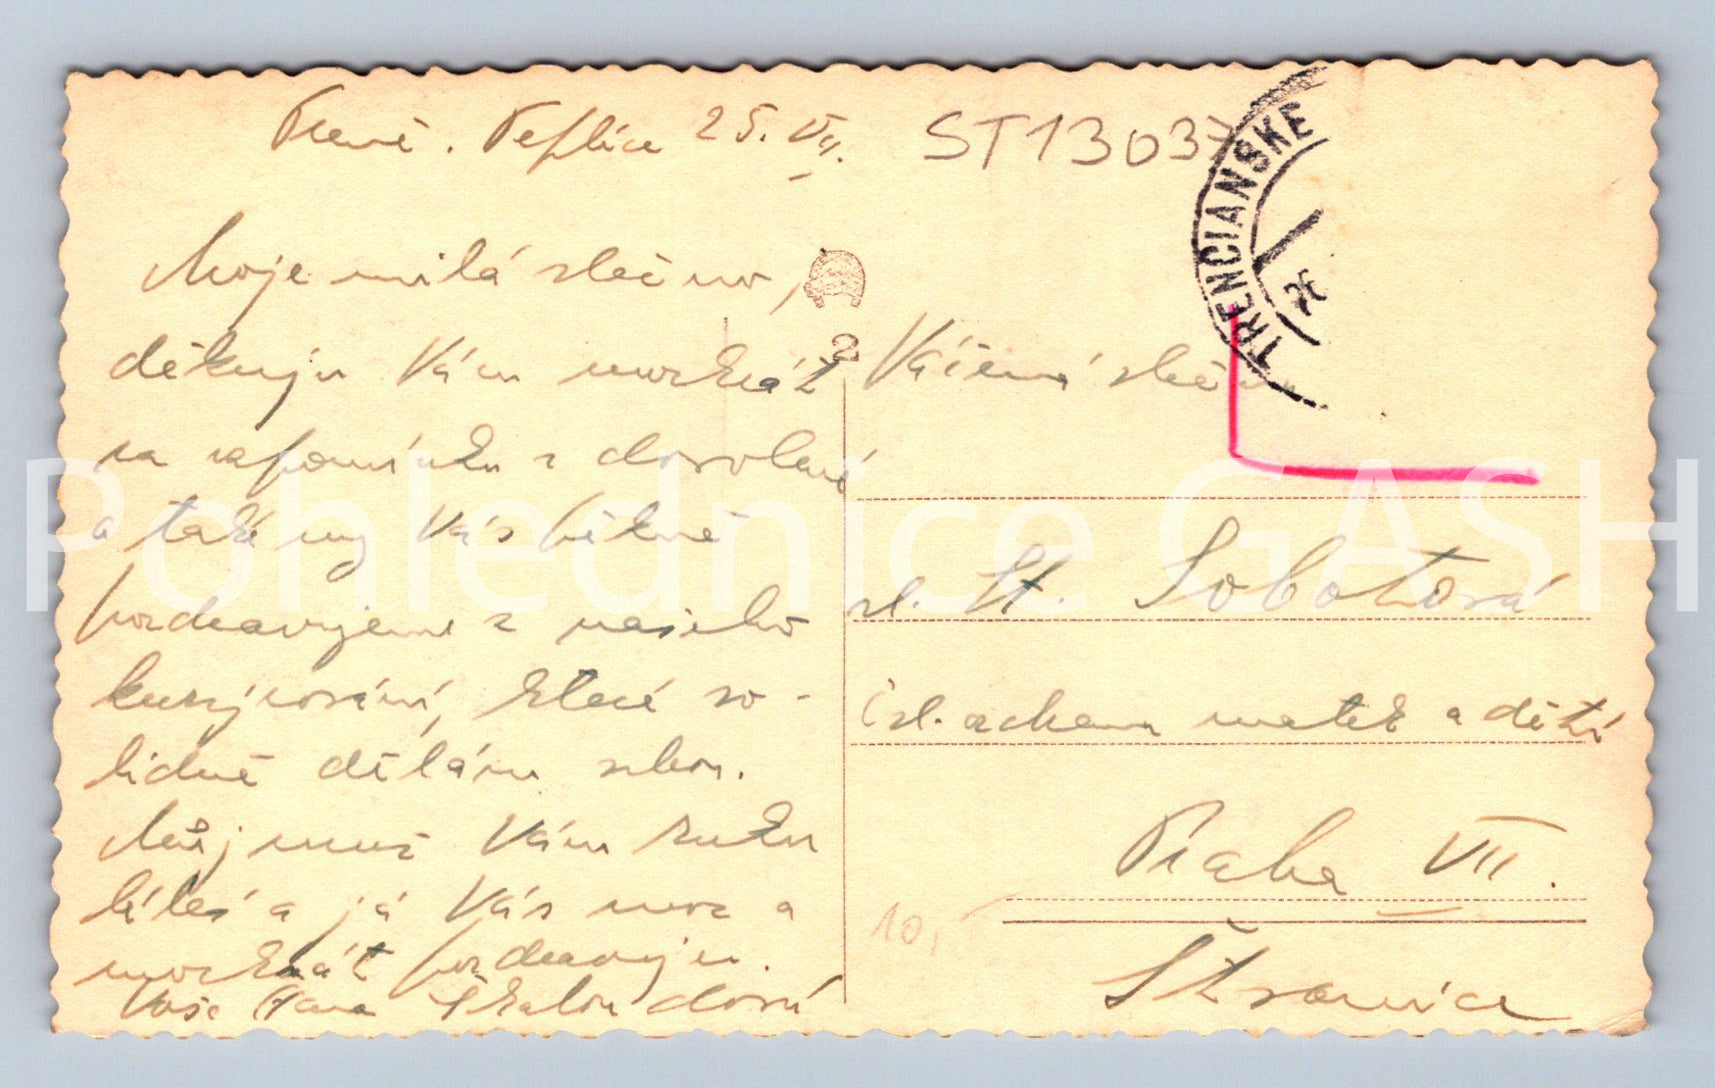 Trenč. Teplice 25. VII.
ST13037
TRENCIANSKE
Moje milá slečno,
děkuju Vám mockrát
za vzpomínku z dovolené
a také my Vás pěkně
pozdravujeme z našeho
kurýrování, které so-
lidně děláme
Můj muž Vám ruku
líbá a já Vás moc a
mockrát pozdravuju.
Vaše Hana
2
Vážená slečna
sl. St. Sobotová
úsl. ochrana matek a dětí
Praha VII.
Štvanice
10,
Pohlednice GASH